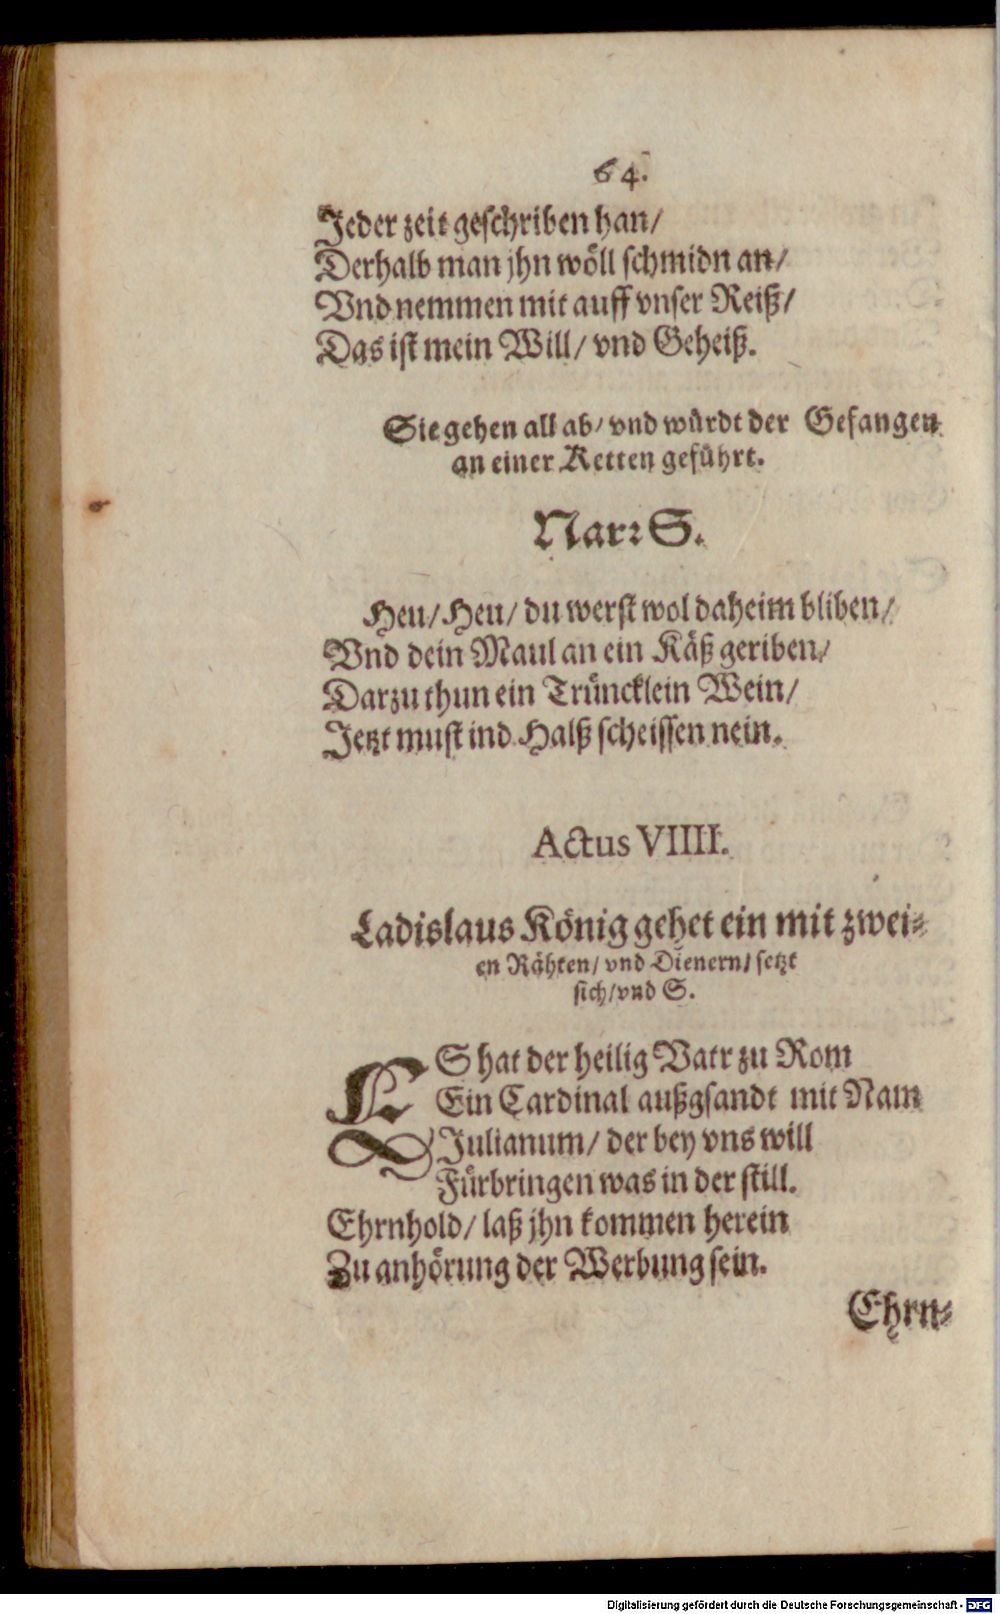 64.
Jeder zeit geschriben han/
Derhalb man jhn wöll schmidn an/
Vnd nemmen mit auff vnser Reiß/
Das ist mein Will/ vnd Geheiß.
Sie gehen all ab/ vnd würdt der Gefangen
an einer Ketten geführt.
Narꝛ S.
Heu/ Heu/ du werst wol daheim bliben/
Vnd dein Maul an ein Käß geriben/
Darzu thun ein Trüncklein Wein/
Jetzt must ind Halß scheissen nein.
Actus VIIII.
Ladislaus König gehet ein mit zwei⸗
en Rähten/ vnd Dienern/ setzt
sich/ vnd S.
ES hat der heilig Vatr zu Rom
Ein Cardinal außgsandt mit Nam
Julianum/ der bey vns will
Fürbringen was in der still.
Ehrnhold/ laß jhn kommen herein
Zu anhörung der Werbung sein.
Ehrn⸗
Digitalisierung gefördert durch die Deutsche Forschungsgemeinschaft - DFG